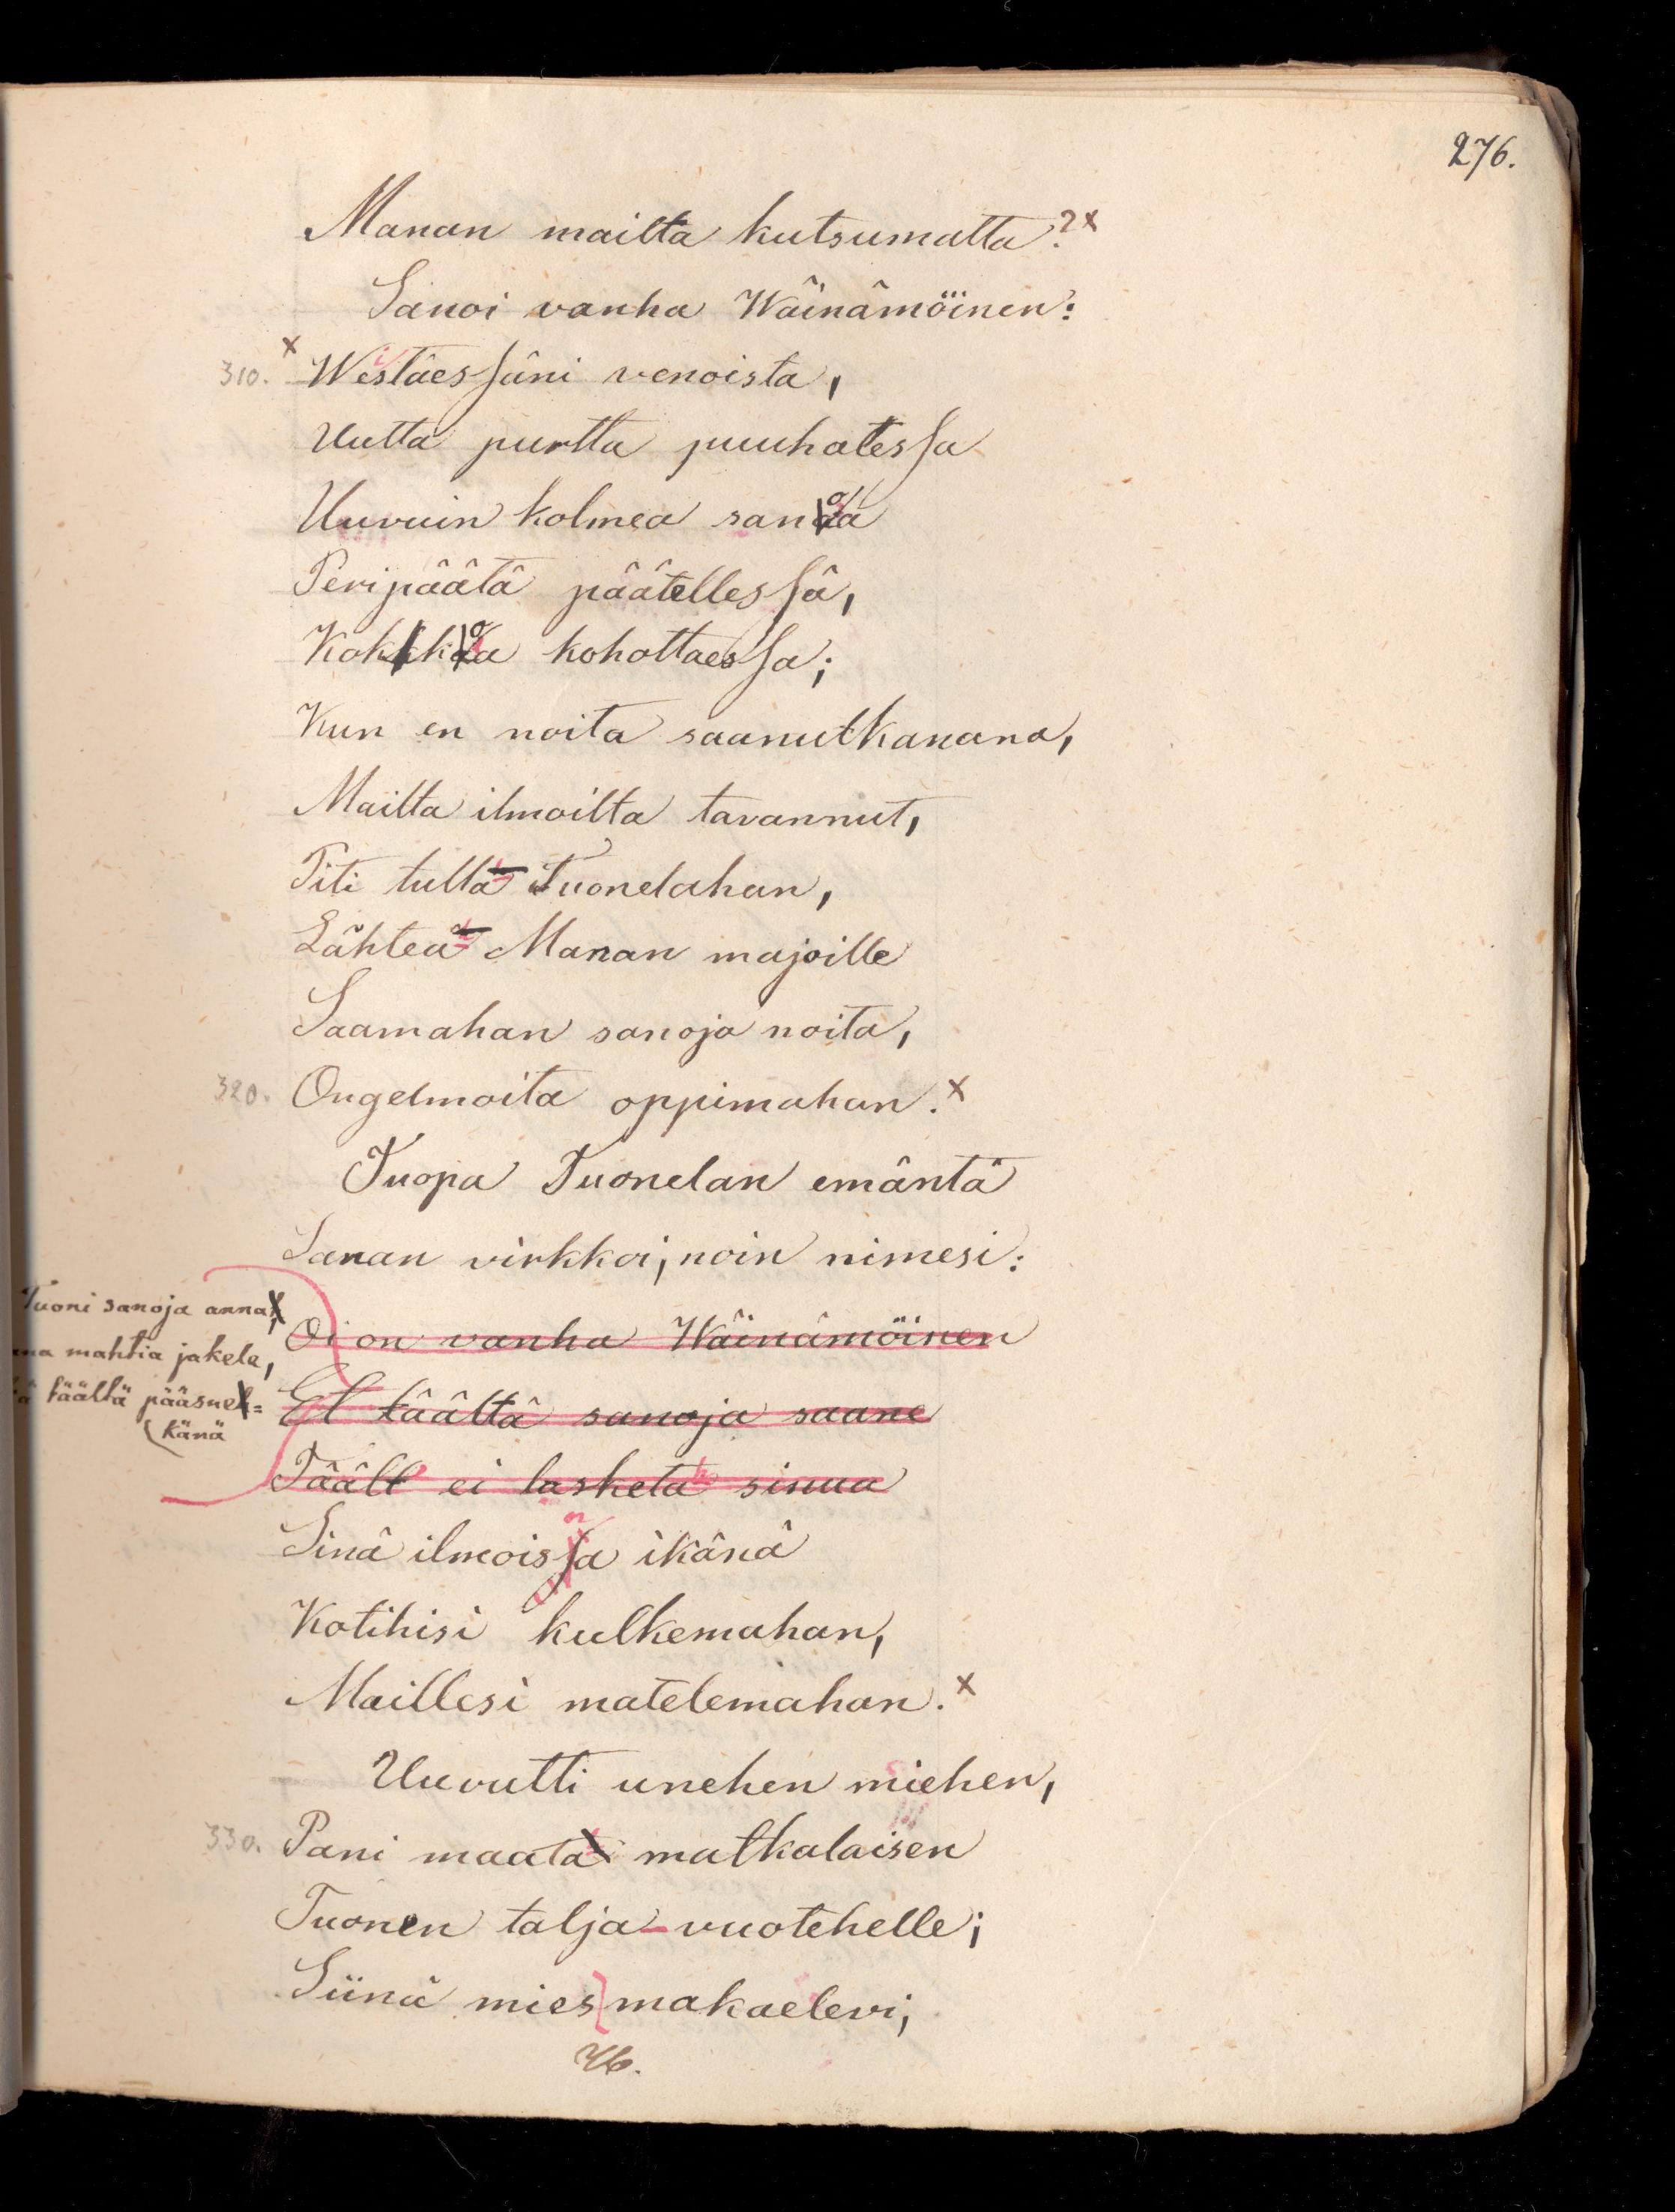 276.
Manan mailta kutsumatta?x
Sanoi vanha Wäinämöinen:
310. x Westäessäni venoista,
Uutta purtta puuhatessa
Uuvuin kolmea sanoa
Peripäätä päätellessä,
Kokkoa kohottaessa;
Kun en noita saanutkanana,
Mailta ilmoilta tavannut,
Piti tulla Tuonelahan,
Lähteä Manan majoille
Saamahan sanoja noita,
320. Ongelmoita oppimahan.x
Tuopa Tuonelan emäntä
Sanan virkkoi, noin nimesi:
Tuoni sanoja anna,
mahtia jakele,
täältä pääsne=
känä
Oi on vanha Wäinämöinen
Et täältä sanoja saane
Täält ei lasketa sinua
Sinä ilmoissa ikänä
Kotihisi kulkemahan,
Maillesi matelemahan.x
Uuvutti unehen miehen,
330. Pani maata matkalaisen
Tuonen talja-vuotehelle;
Siinä mies makaelevi;
46.